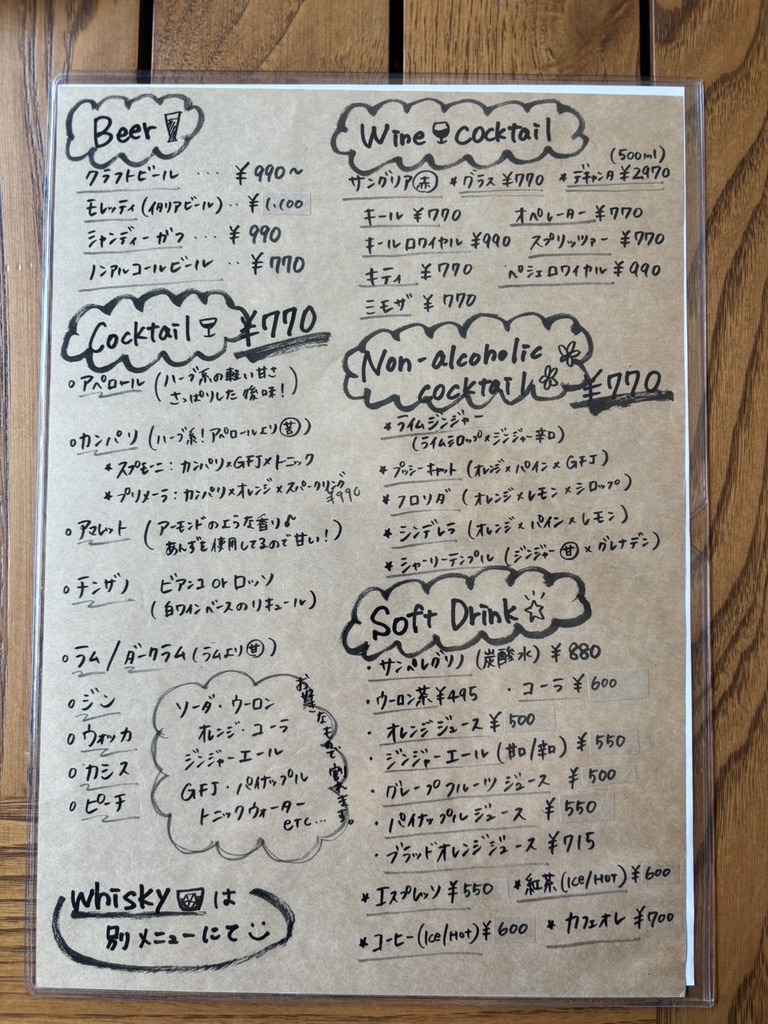 Beer
クラフトビール ‥‥ ¥990〜
モレッティ(イタリアビール)‥ ¥1,100
シャンディーガフ ‥‥ ¥990
ノンアルコールビール ‥ ¥770
Cocktail ¥770
○ アペロール (ハーブ系の軽い甘さ
さっぱりした後味!)
○ カンパリ (ハーブ系!アペロールより㊀苦)
* スプモーニ:カンパリ×GFJ×トニック
* プリメーラ:カンパリ×オレンジ×スパークリング
¥990
○ アマレット (アーモンドのような香り♪
あんずを使用してるので甘い!)
○ チンザノ ビアンコ or ロッソ
(白ワインベースのリキュール)
○ ラム/ダークラム (ラムより甘)
○ ジン
○ ウォッカ
○ カシス
○ ピーチ
ソーダ・ウーロン
オレンジ・コーラ
ジンジャーエール
GFJ・パイナップル
トニックウォーター
etc...
お好きなもので割れます。
Whisky は
別メニューにて
Wine cocktail
(500ml)
サングリア(赤) * グラス ¥770 * デキャンタ ¥2970
キール ¥770 オペレーター ¥770
キールロワイヤル ¥990 スプリッツァー ¥770
キティ ¥770 ペシェロワイヤル ¥990
ミモザ ¥770
Non-alcoholic
cocktail ¥770
* ライムジンジャー
(ライムシロップ×ジンジャー辛口)
* プッシーキャット (オレンジ×パイン×GFJ)
* フロリダ (オレンジ×レモン×シロップ)
* シンデレラ (オレンジ×パイン×レモン)
* シャーリーテンプル (ジンジャー甘×グレナデン)
Soft Drink
・サンペレグリノ (炭酸水) ¥880
・ウーロン茶 ¥495 ・コーラ ¥600
・オレンジジュース ¥500
・ジンジャーエール (甘口/辛口) ¥550
・グレープフルーツジュース ¥500
・パイナップルジュース ¥550
・ブラッドオレンジジュース ¥715
* エスプレッソ ¥550 * 紅茶 (Ice/HOT) ¥600
* コーヒー (Ice/HOT) ¥600 * カフェオレ ¥700